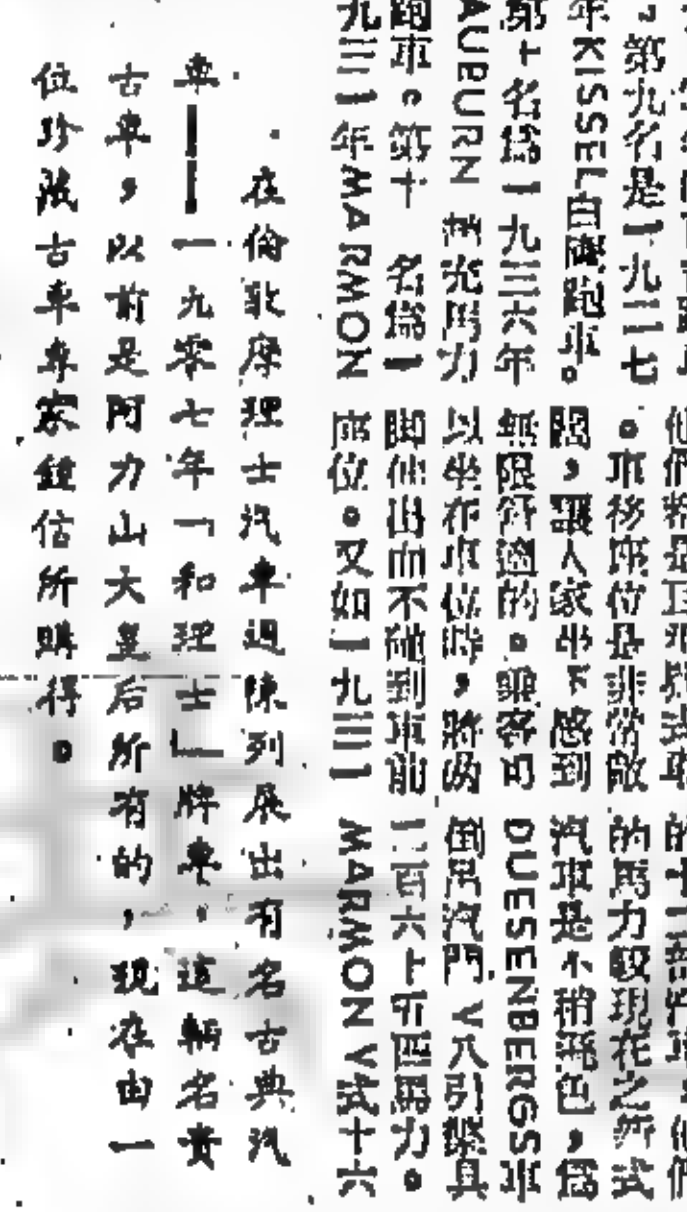 第九名是一九二七
年KISSEL白 跑車。
第十名為一九三六年
AUBURN 馬力
跑車。第十 名為一
九三一年MARMON
。車後座位是非常敞
闊，讓人家坐下感到
無限舒適的。乘客可
以坐在車位時，將両
脚伸出而不碰到車前
座位。又如一九三一
的馬力較現在之新式
汽車是不稍遜色，為
DUESENBERGS車
倒吊汽門，V八引擎具
二百六十五匹馬力。
MARMON V式十六
在倫敦摩理士汽車週陳列展出有名古典汽
車——一九零七年「和理士」牌車。這輛名貴
古車，以前是阿力山大皇后所有的，現在由一
位珍藏古車專家鍾信所購得。